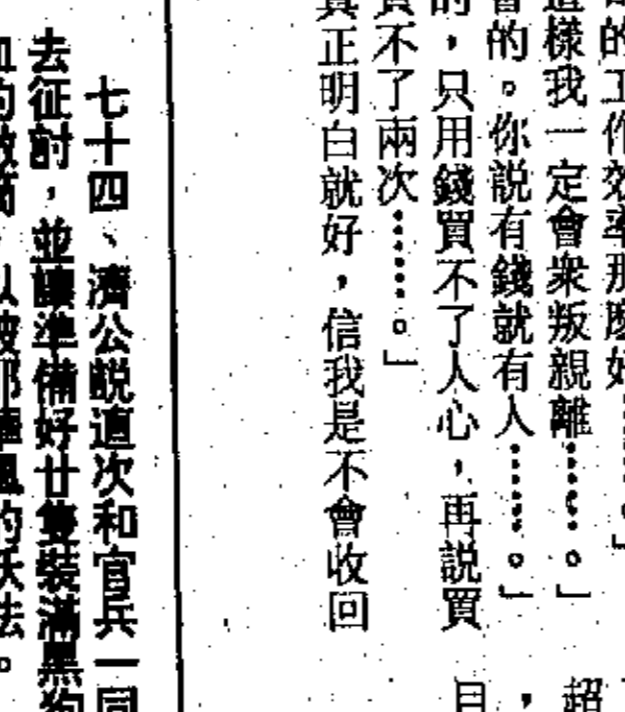 的工作效率那麼好……。」
這樣我一定會衆叛親離……。」
會的。你説有錢就有人……。」
的，只用錢買不了人心，再説買
買不了兩次……。」
真正明白就好，信我是不會收回
超
，
目
七十四、濟公説這次和官兵一同
去征討，並讓準備好廿隻裝滿黑狗
血的
以破邪
的妖法。